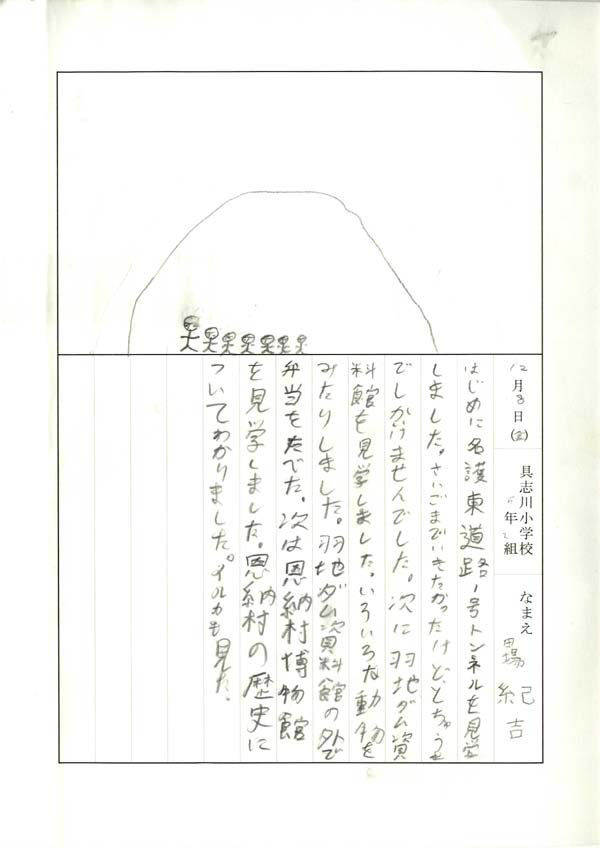 12月8日(金) 具志川小学校 5年2組 なまえ 場 紀吉
はじめに名護東道路1号トンネルを見学
しました。さいごまでいきたかったけど、とちゅうま
でしかいけませんでした。次に羽地ダム資
料館を見学しました。いろいろな動物を
みたりしました。羽地ダム資料館の外で
弁当をたべた。次は恩納村博物館
を見学しました。恩納村の歴史に
ついてわかりました。イルカも見た。